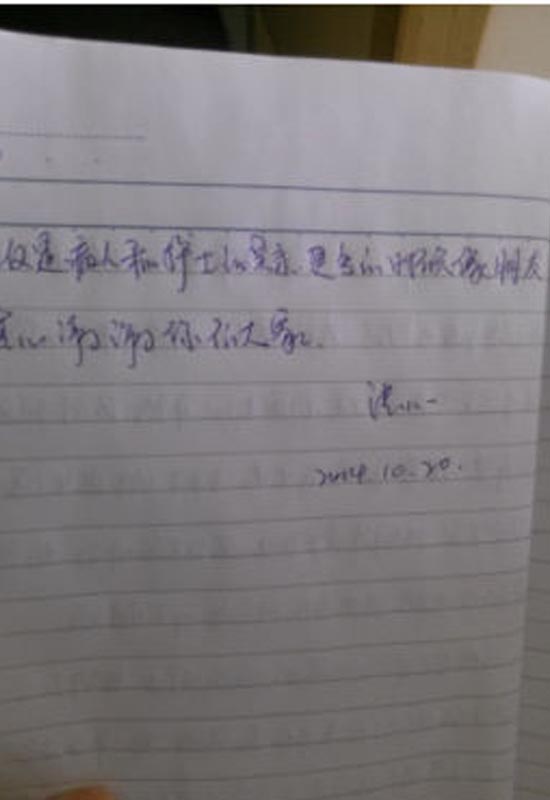 仅是病人和护士的关系,更多的时候像朋友
谢谢你们大家。
2014.10.20.